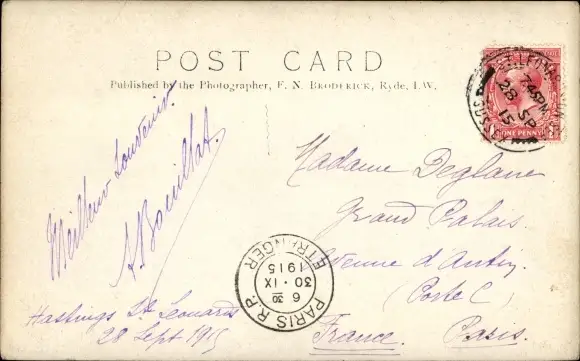 POST CARD
Published by the Photographer, F. N. BRODERICK, Ryde, I.W.
ST LEONARDS
7.45 PM
28 SP
15
SUSSEX
ONE PENNY
Meilleur Souvenir
A Bouillat.
Madame Deglane
Grand Palais.
Avenue d'Antin.
(Porte C)
France. Paris.
PARIS R.P.
6 30
30 · IX
1915
ETRANGER
Hastings St Leonards
28 Sept 1915